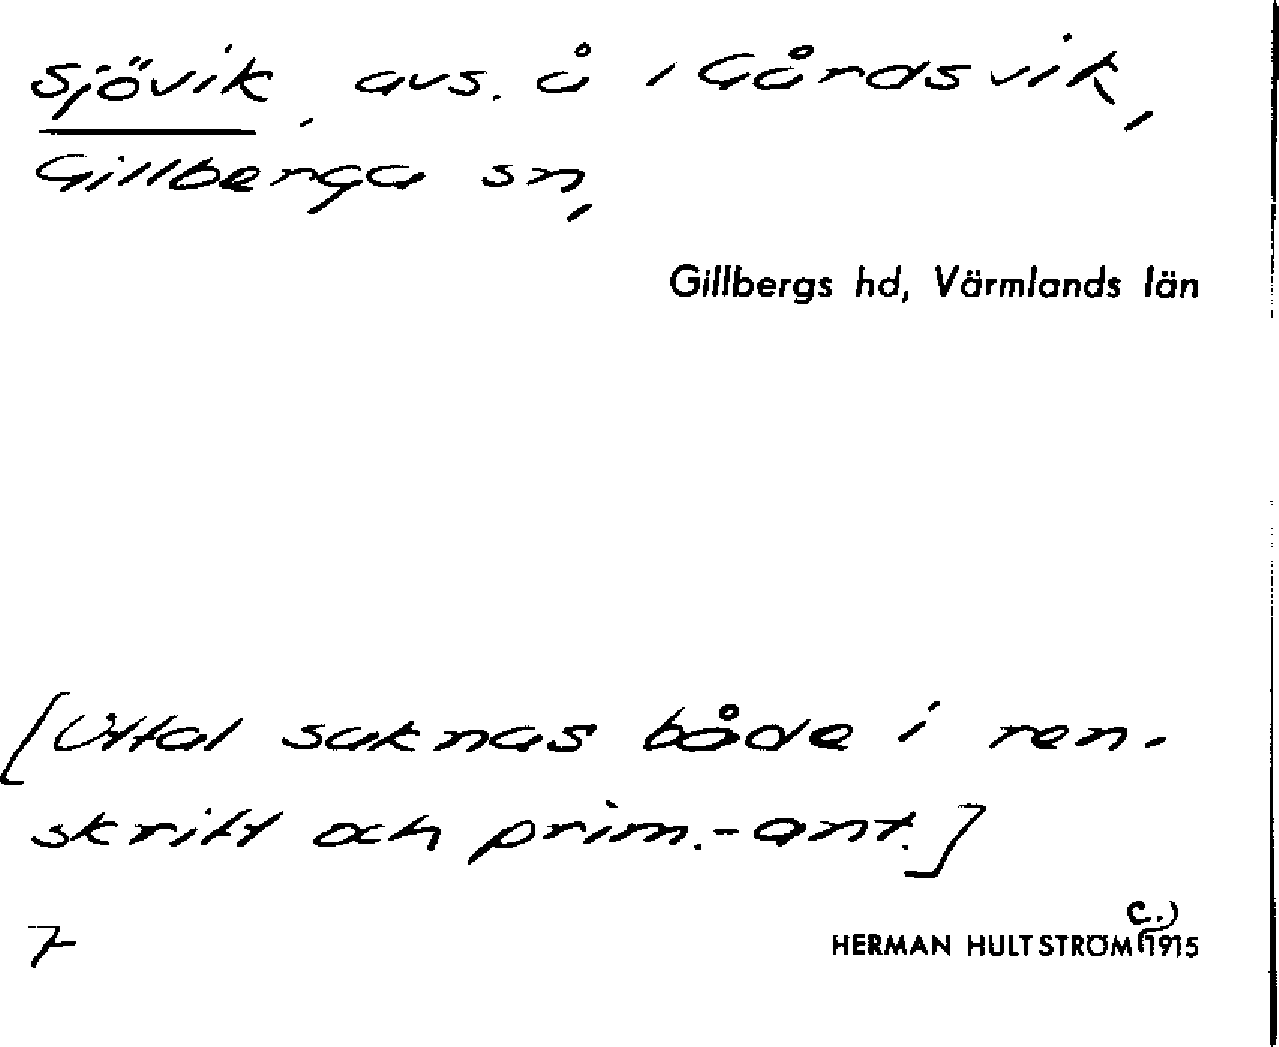 Sjövik, avs. å i Gårdsvik,
Gillberga sn,
Gillbergs hd, Värmlands län
[Uttal saknas både i ren-
skrift och prim.-ant.]
7
HERMAN HULTSTRÖM (c.) 1915